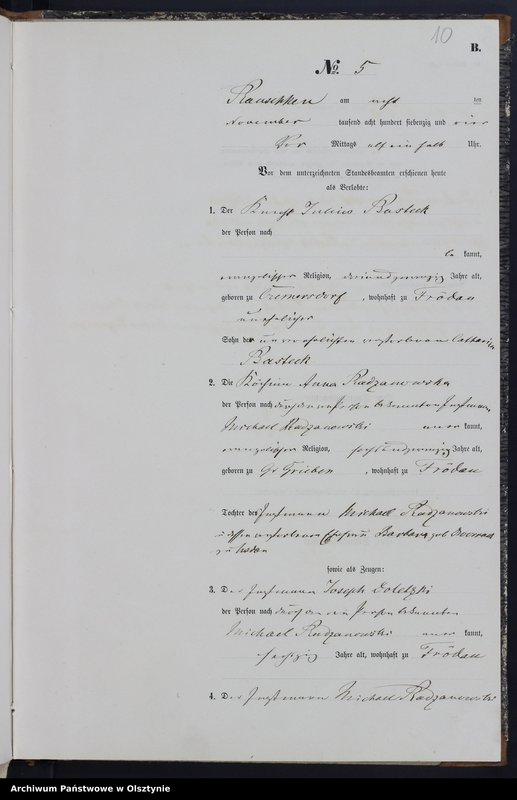 10
B.
No. 5
Rauschken am acht ten
November tausend acht hundert siebenzig und vier
Vor Mittags elf ein halb Uhr.
Vor dem unterzeichneten Standesbeamten erschienen heute
als Verlobte:
1. Der Knecht Julius Basteck
der Person nach
be kannt,
evangelischer Religion, dreiundzwanzig Jahre alt,
geboren zu Cremersdorf, wohnhaft zu Frödau
unehelicher
Sohn der unverehelichten verstorbenen Catharina
Basteck
2. Die Köchin Anna Radzanowska
der Person nach durch den von Person bekannten Instmann
Michael Radzanowski aner kannt,
evangelischer Religion, sechsundzwanzig Jahre alt,
geboren zu Gr Grieben, wohnhaft zu Frödau
Tochter des Instmann Michael Radzanowski
u dessen verstorbenen Ehefrau Barbara geb
zu
sowie als Zeugen:
3. Der Instmann Joseph
der Person nach durch den von Person bekannten
Michael Radzanowski aner kannt,
sechzig Jahre alt, wohnhaft zu Frödau
4. Der Instmann Michael Radzanowski
Archiwum Państwowe w Olsztynie